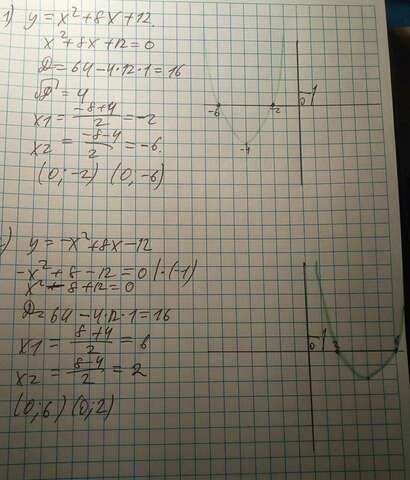 1) y = x²+8x+12.
x²+8x+12=0
D=64-4·12·1=16
√D=4
x1 = (-8+4)/2 = -2
x2 = (-8-4)/2 = -6.
(0;-2) (0;-6)
-6 -2 0 1
-4
y = -x²+8x-12
-x²+8-12=0 |·(-1)
x²-8+12=0
D=64-4·12·1=16
x1 = (8+4)/2 = 6
x2 = (8-4)/2 = 2
(0;6) (0;2)
0 1 2